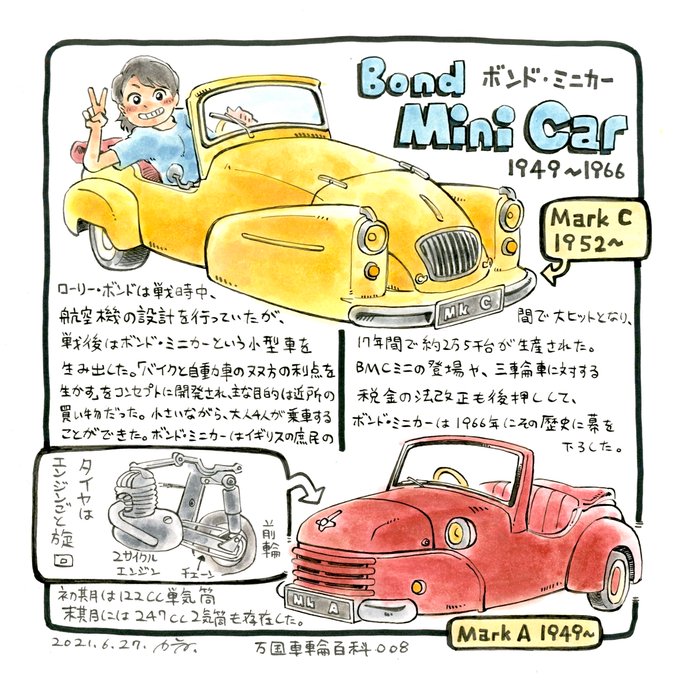 Bond ボンド・ミニカー
Mini Car
1949〜1966
Mark C
1952〜
Mk C
ローリー・ボンドは戦時中、
航空機の設計を行っていたが、
戦後はボンド・ミニカーという小型車を
生み出した。「バイクと自動車の双方の利点を
生かす」をコンセプトに開発され、主な目的は近所の
買い物だった。小さいながら、大人4人が乗車する
ことができた。ボンド・ミニカーはイギリスの庶民の
間で大ヒットとなり、
17年間で約2万5千台が生産された。
BMCミニの登場や、三輪車に対する
税金の法改正も後押しして、
ボンド・ミニカーは1966年にその歴史に幕を
下ろした。
タイヤは
エンジンごと旋回
2サイクル
エンジン
チェーン
前輪
初期は122cc単気筒
末期には247cc2気筒も存在した。
Mk A
Mark A 1949〜
2021.6.27.
万国車輪百科008